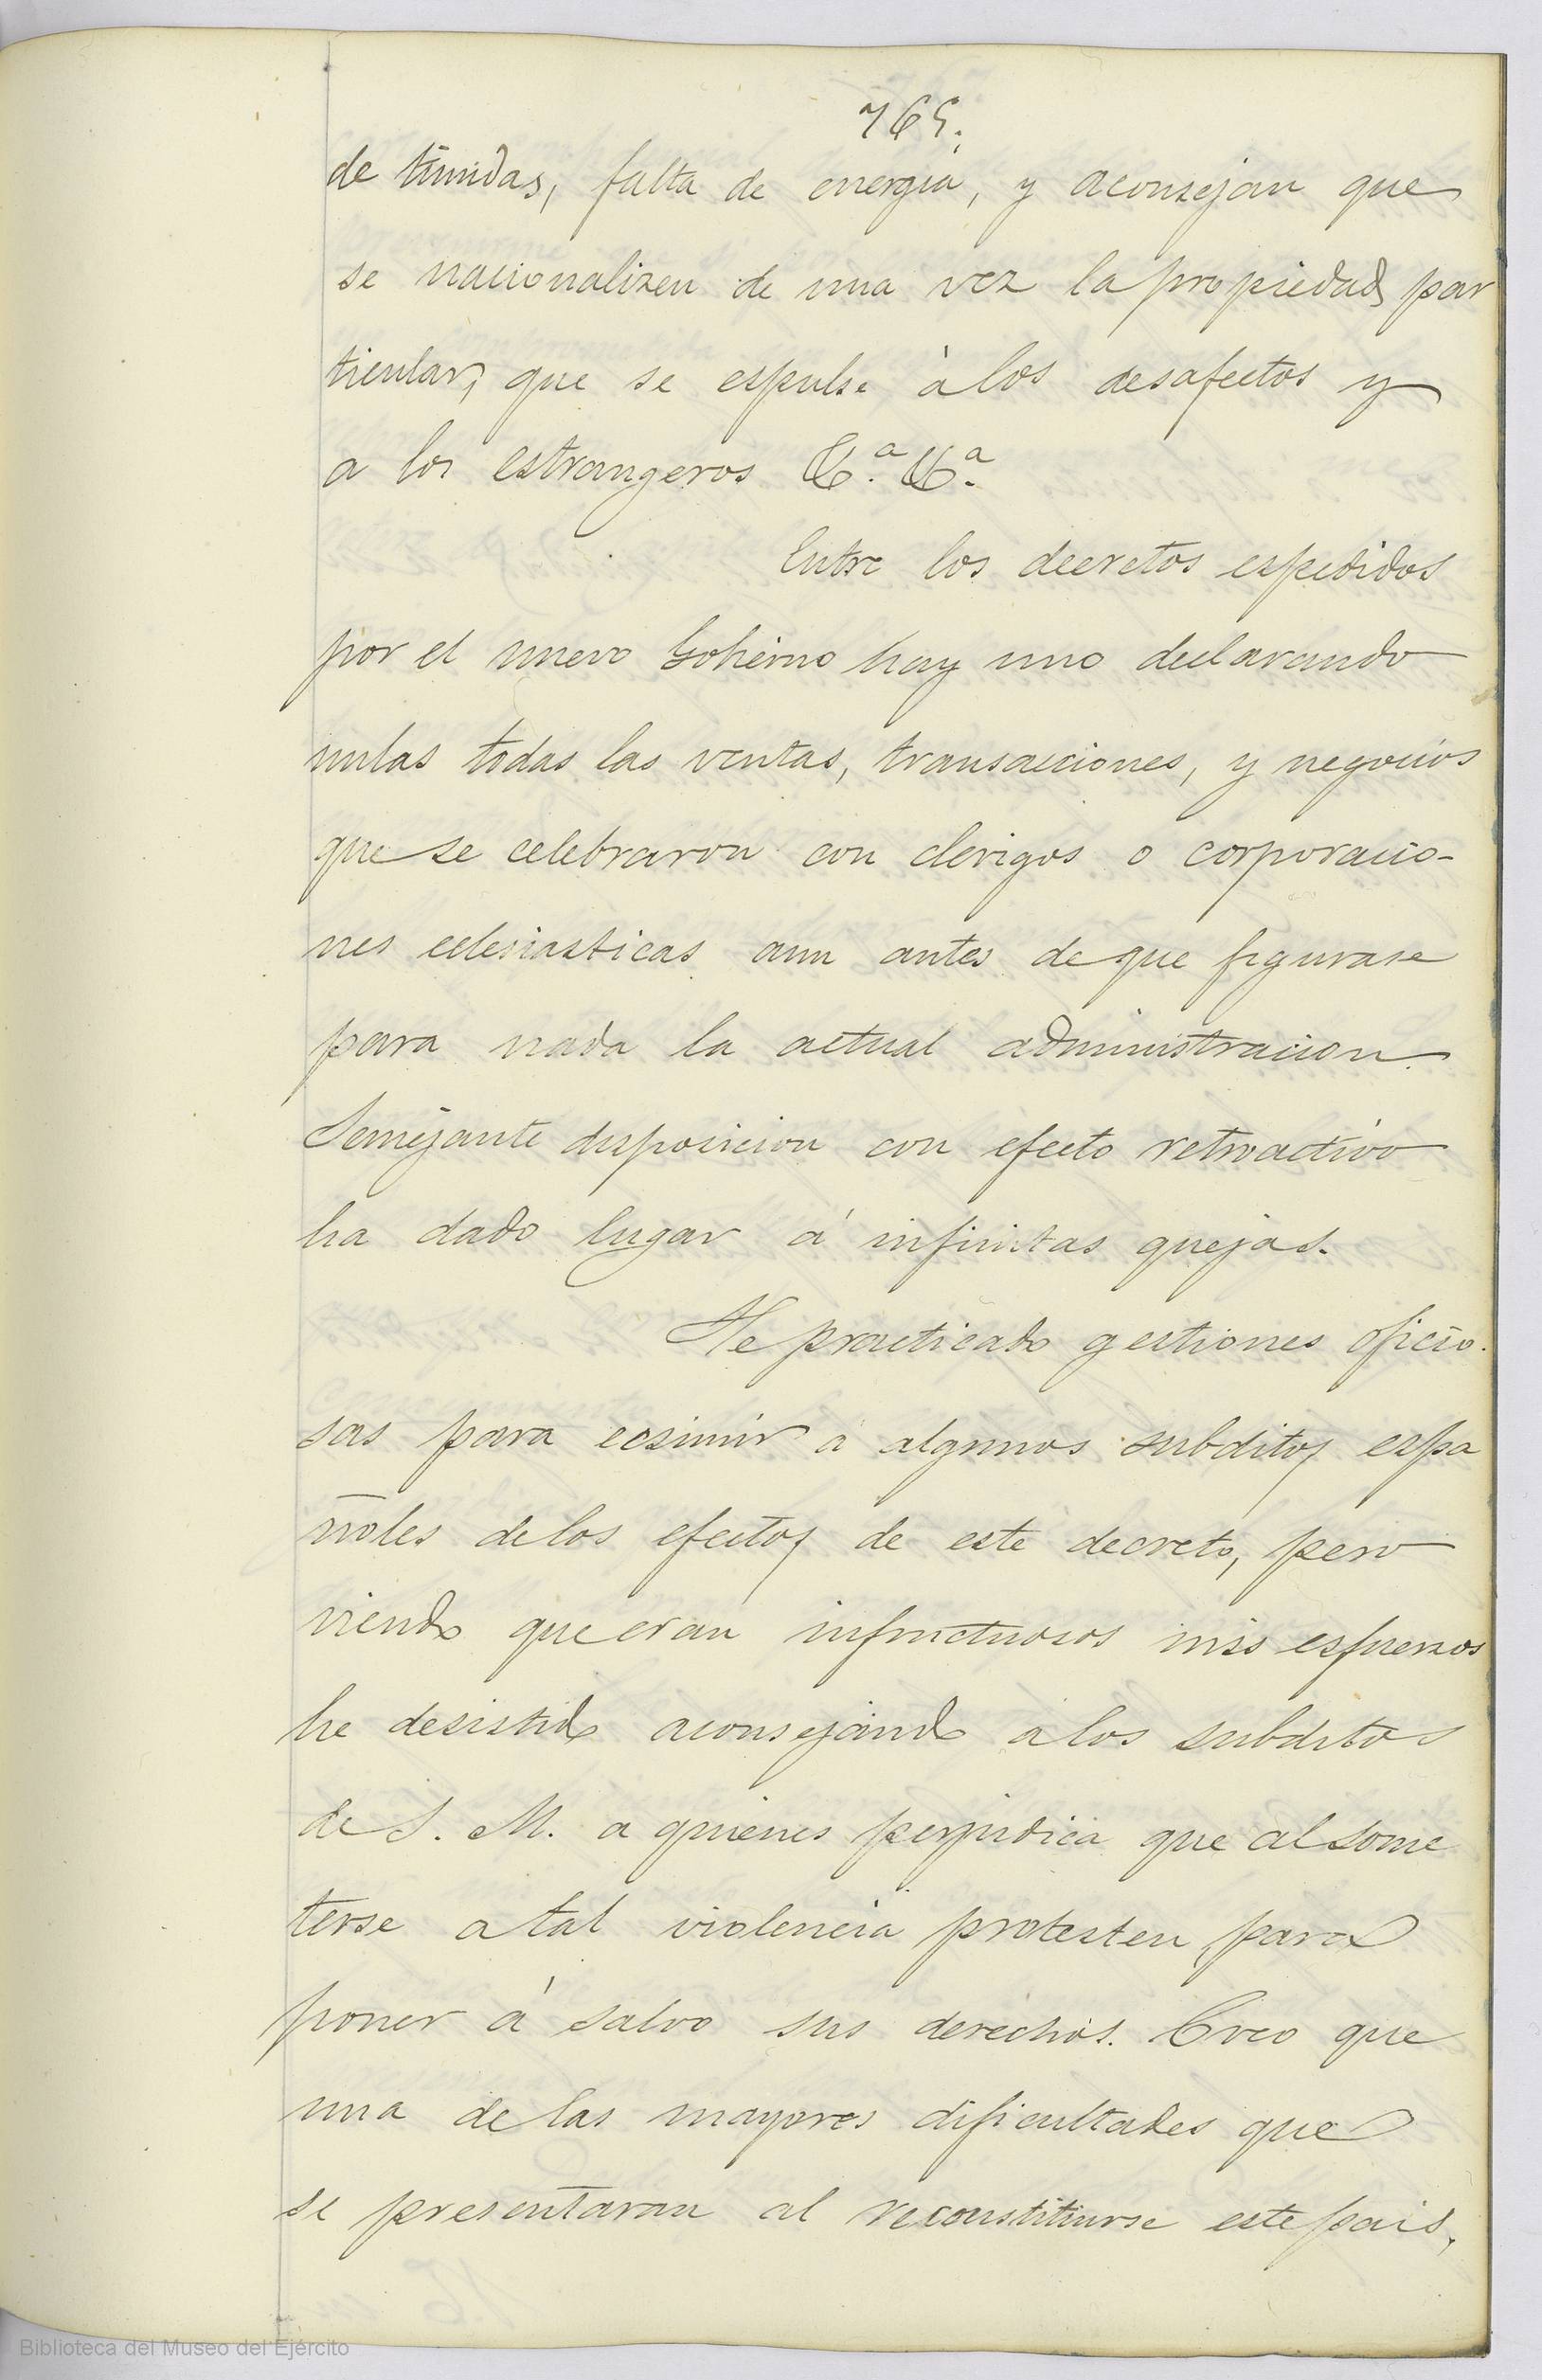 765.
de timidas, falta de energia, y aconsejan que
se nacionalizen de una vez la propiedad par
ticular, que se espulse à los desafectos y
a los estrangeros &.ª &.ª
Entre los decretos espedidos
por el nuevo Gobierno hay uno declarando
nulas todas las ventas, transacciones, y negocios
que se celebraron con clerigos o corporacio-
nes eclesiasticas aun antes de que figurase
para nada la actual administracion.
Semejante disposicion con efecto retroactivo
ha dado lugar á infinitas quejas.
He practicado gestiones oficio.
sas para ecsimir a algunos subditos espa
ñoles de los efectos de este decreto, pero
viendo que eran infructuosos mis esfuerzos
he desistido aconsejando a los subditos
de S. M. a quienes perjudica que al some
terse a tal violencia protesten para
poner á salvo sus derechos. Creo que
una de las mayores dificultades que
se presentaran al reconstituirse este pais,
Biblioteca del Museo del Ejército